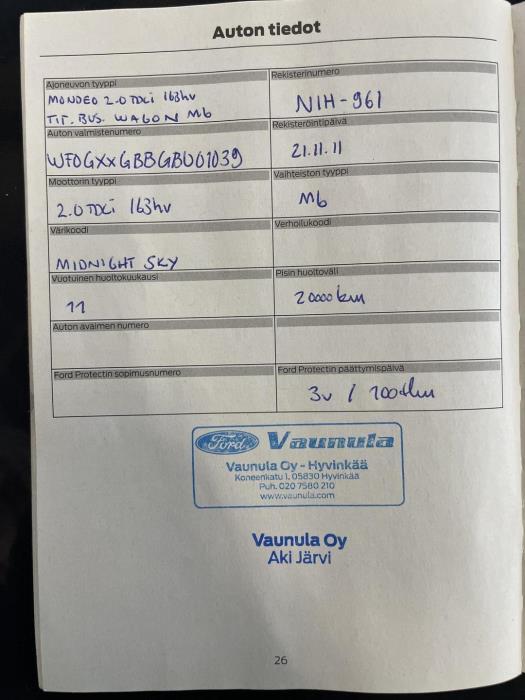 Auton tiedot
Ajoneuvon tyyppi
MONDEO 2.0 TDCi 163hv
TIT. BUS. WAGON M6
Rekisterinumero
NIH-961
Auton valmistenumero
WF0GXXGBBGBU01039
Rekisteröintipäivä
21.11.11
Moottorin tyyppi
2.0 TDCi 163hv
Vaihteiston tyyppi
M6
Värikoodi
MIDNIGHT SKY
Verhoilukoodi
Vuotuinen huoltokuukausi
11
Pisin huoltoväli
20000km
Auton avaimen numero
Ford Protectin sopimusnumero
Ford Protectin päättymispäivä
3v / 100tkm
Ford Vaunula
Vaunula Oy - Hyvinkää
Koneenkatu 1, 05830 Hyvinkää
Puh. 020 7580 210
www.vaunula.com
Vaunula Oy
Aki Järvi
26